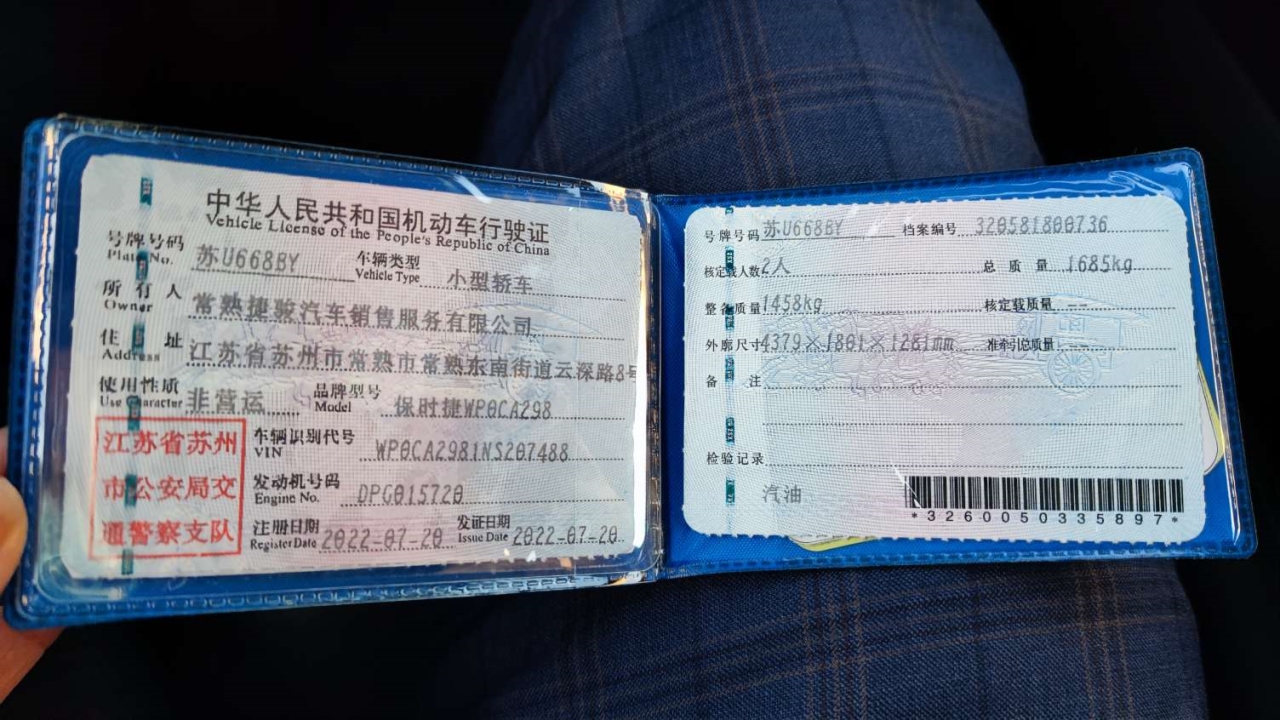 中华人民共和国机动车行驶证
Vehicle License of the People's Republic of China
号牌号码 苏U668BY 车辆类型 小型轿车
Plate No. Vehicle Type
所有人 常熟捷骏汽车销售服务有限公司
Owner
住址 江苏省苏州市常熟市常熟东南街道云深路8号
Address
使用性质 非营运 品牌型号 保时捷WP0CA298
Use Character Model
江苏省苏州
市公安局交
通警察支队
车辆识别代号 WP0CA2981NS207488
VIN
发动机号码 DPG015720
Engine No.
注册日期 2022-07-20 发证日期 2022-07-20
Register Date Issue Date
号牌号码 苏U668BY 档案编号 320581800736
核定载人数 2人 总质量 1685kg
整备质量 1458kg 核定载质量 --
外廓尺寸 4379×1801×1281mm 准牵引总质量 --
备注
检验记录
汽油
*3260050335897*